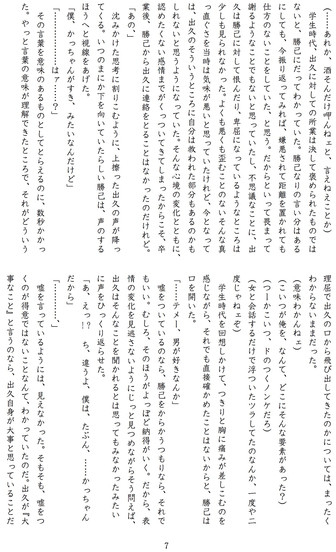 （……あれか、酒そんだけ呑んェと、言えねェことか）
　学生時代、出久に対しての所業は決して褒められたものでは
ないと、勝己にだってわかっていた。勝己なりの言い分はある
にしても、今振り返ってみれば、嫌悪されて距離を置かれても
仕方のないことをしていた、と思う。だからといって畏まって
謝るようなことでもないと思っていたし、不思議なことに、出
久は勝己に対して恨んだり、卑屈になっているようなところは
少しも見られなかった。よくも悪くも歪むことのないそんな真
っ直ぐさを当時は気味が悪いと思っていたけれど、今となって
は、出久のそういうところに自分は救われた部分もあるのかも
しれないと思うようになっていた。そんな心境の変化とともに、
認めたくない感情までがくっついてきてしまったからこそ、卒
業後、勝己から出久に連絡をとることはなかったのだけれど。
「あの」
　沈みかけた思考に割りこむように、上擦った出久の声が降っ
てくる。いつのまにか下を向いていたらしい勝己は、声のする
ほうへと視線をあげた。
「僕、かっちゃんがすき、みたいなんだけど」
「…………………は……？」
　その言葉を意味のあるものとしてとらえるのに、数秒かかっ
た。やっと言葉の意味が理解できたところで、それがどういう
理屈で出久の口から飛び出してきたのかについては、まったく
わからないままだった。
（意味わかんねェ）
（こいつが俺を、なんで、どこにそんな要素があった？）
（つーかこいつ、ドのつくノンケだろ）
（女と会話するだけで浮ついたツラしてたのなんか、一度や二
度じゃねェぞ）
　学生時代を回想しかけて、つきりと胸に痛みが差しこむのを
感じながら、それでも直接確かめたことはないからと、勝己は
口を開いた。
「……テメー、男が好きなんか」
　嘘をついているのなら、勝己をからかうつもりなら、それで
もいい。むしろ、そのほうがよっぽど納得がいく。だから、表
情の変化を見逃さないようにじっと見つめながらそう問えば、
出久はそんなことを聞かれるとは思ってもみなかったみたい
に声をひっくり返らせた。
「あ、えっ？！　ち、違うよ、僕は、たぶん、……かっちゃん
だから」
「…………」
　嘘を言っているようには、見えなかった。そもそも、嘘をつ
くのが得意ではないことなんて、わかっていたのだ。出久が『大
事なこと』と言うのなら、出久自身が大事と思っていることだ
7